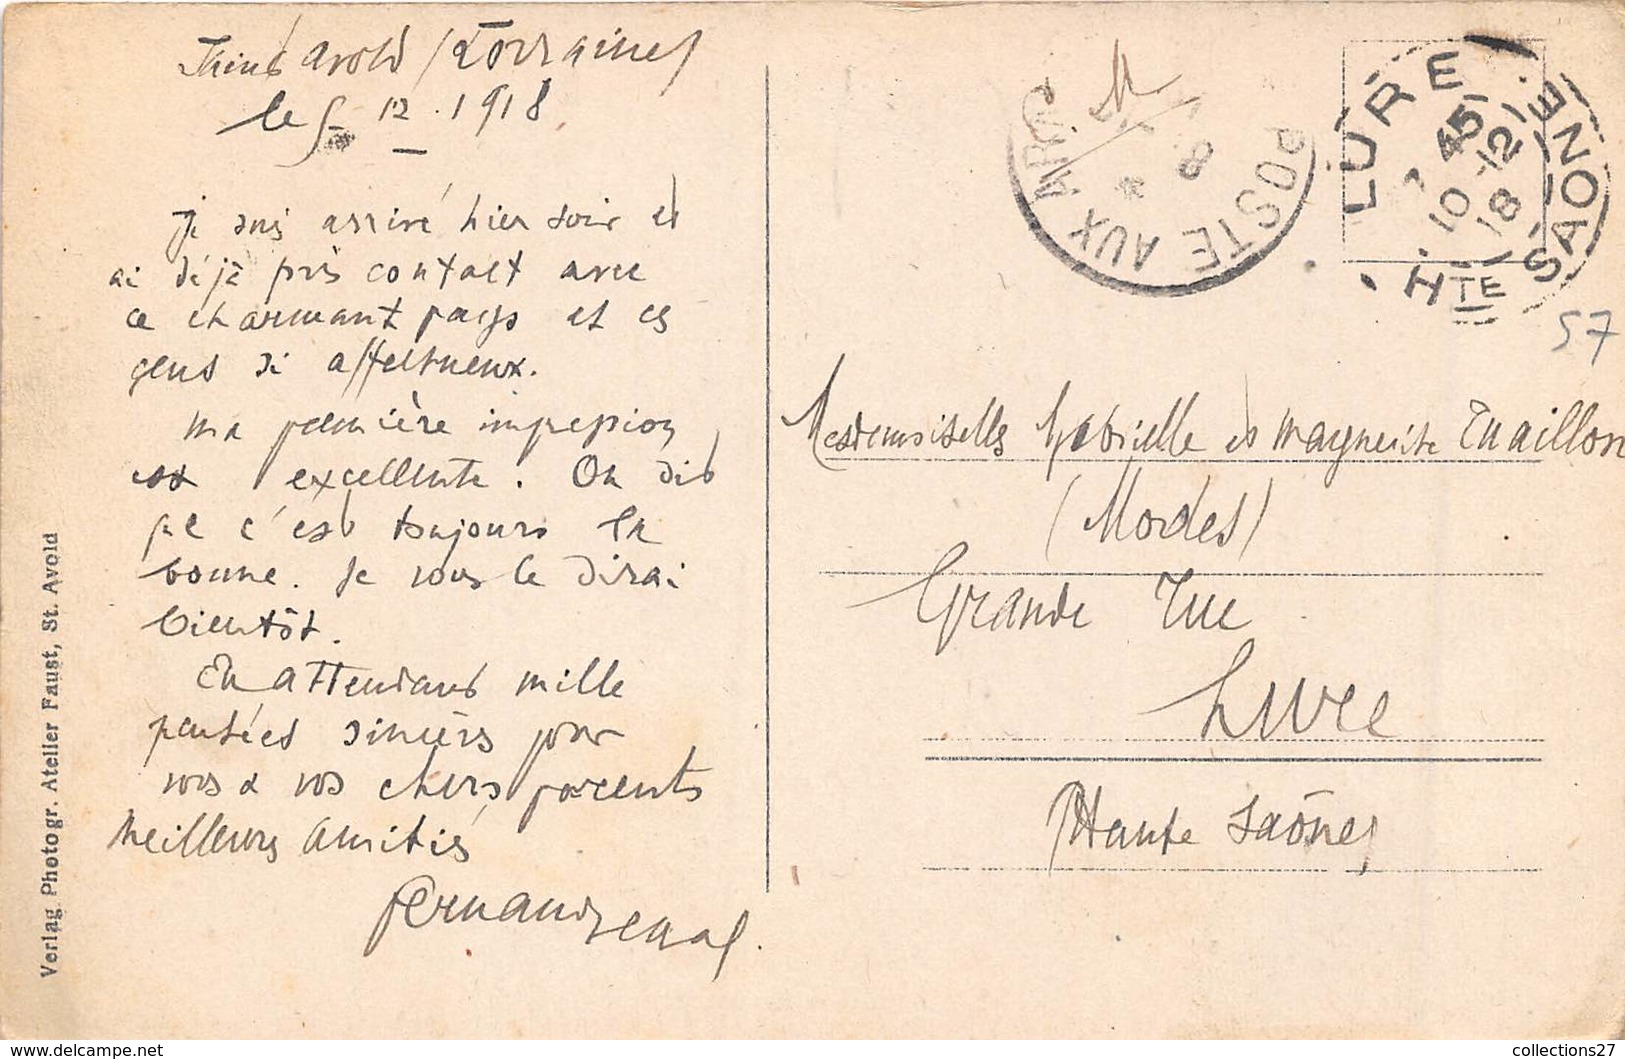 Saint Avold (Lorraine)
le 5 12 . 1918
Je suis arrivé hier soir et
ai déjà pris contact avec
ce charmant pays et ces
gens si affectueux.
Ma première impression
est excellente. On dit
que c'est toujours la
bonne. Je vous le dirai
bientôt.
En attendant mille
pensées sincères pour
vous & vos chers parents
Meilleures amitiés
Fernand
Verlag Photogr. Atelier Faust, St. Avold
POSTE AUX ARMÉES
8
LURE
45
10 -12
18
HTE SAONE
57
Mesdemoiselles Gabrielle et Marguerite Tuaillon
(Modes)
Grande rue
Lure
(Haute Saône)
collections27
www.delcampe.net